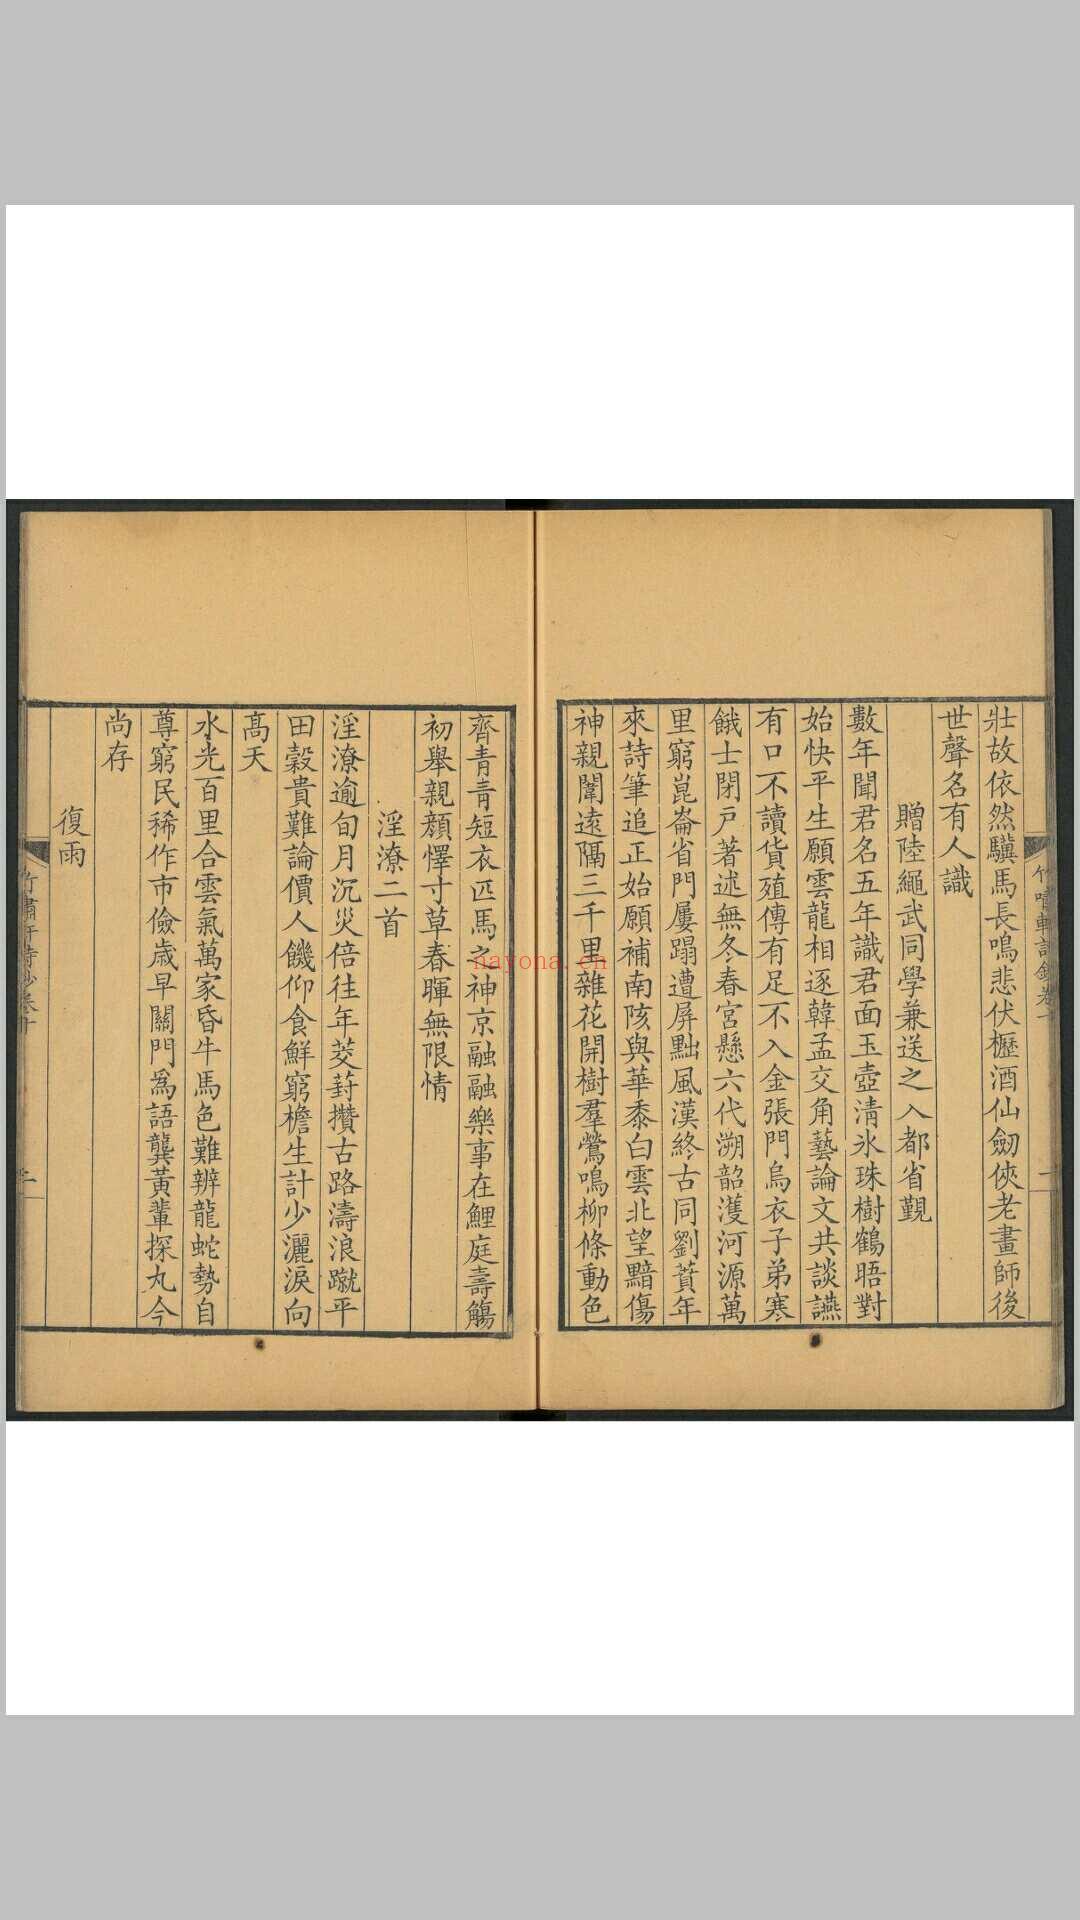 壯故依然驥馬長鳴悲伏櫪酒仙劒俠老畫師後
世聲名有人識
贈陸繩武同學兼送之入都省覲
數年聞君名五年識君面玉壺清氷珠樹鶴晤對
始快平生願雲龍相逐韓孟交角藝論文共談讌
有口不讀貨殖傳有足不入金張門烏衣子弟寒
餓士閉戸著述無冬春宮懸六代溯韶濩河源萬
里窮崑崙省門屢蹋遭屏黜風漢終古同劉蕡年
來詩筆追正始願補南陔與華黍白雲北望黯傷
神親闈遠隔三千里雜花開樹羣鶯鳴柳條動色
齊青青短衣匹馬之神京融融樂事在鯉庭壽觴
初舉親顔懌寸草春暉無限情
淫潦二首
淫潦逾旬月沉災倍往年茭葑攢古路濤浪蹴平
田穀貴難論價人饑仰食鮮窮檐生計少灑淚向
髙天
水光百里合雲氣萬家昏牛馬色難辨龍蛇勢自
尊窮民稀作市儉歳早關門爲語龔黃輩探丸今
尚存
復雨
竹嘯軒詩鈔卷十
nayona.cn